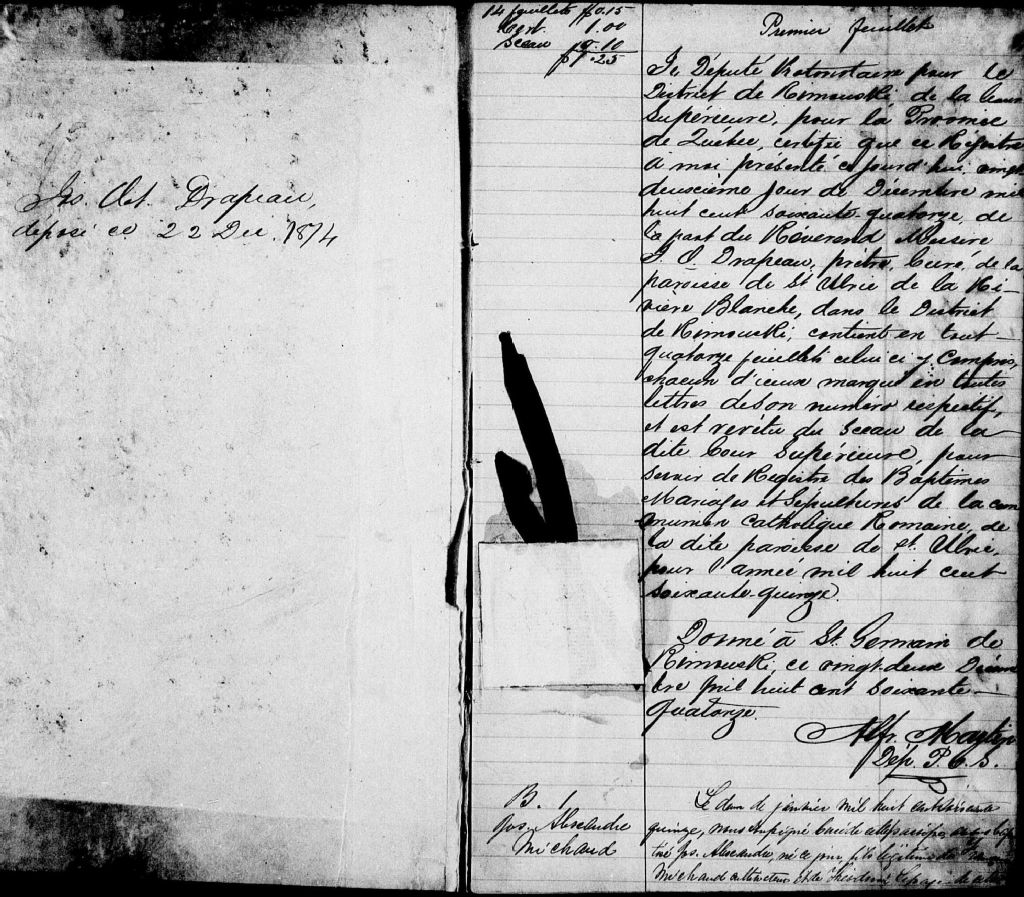 Jos. Oct. Drapeau,
déposé ce 22 Dec. 1874
14 feuillets $0.15
Cert. 1.00
Sceau 0.10
$1.25
Premier feuillet
Je, Député Protonotaire pour le
District de Rimouski, de la Cour
Supérieure, pour la Province
de Québec, certifie que ce Régistre
à moi présenté ce jourd'hui, vingt
deuxième jour de Decembre mil
huit cent soixante-quatorze, de
la part du Révérend Messire
J. O. Drapeau, prêtre, Curé, de la
paroisse de St Ulric de la Ri-
vière Blanche, dans le District
de Rimouski, contient en tout
quatorze feuillets celui ci y Compris,
chacun d'iceux marqué en toutes
lettres de son numéro respectif,
et est revêtu du Sceau de la
dite Cour Supérieure, pour
servir de Registre des Baptêmes
Mariages et Sépultures de la com
munion Catholique Romaine, de
la dite paroisse de St. Ulric,
pour l'année mil huit cent
soixante-quinze.
Donné à St. Germain de
Rimouski, ce vingt-deux Décem
bre mil huit cent soixante-
quatorze.
Alfr. Martin
Dép. P. C. S.
B. 1
Jos. Alexandre
Michaud
Le deux de janvier mil huit cent soixante
quinze, nous soussigné Curé de cette paroisse, avons bap
tisé Jos. Alexandre, né ce jour, fils légitime de
Michaud cultivateur et de Lepage de cette